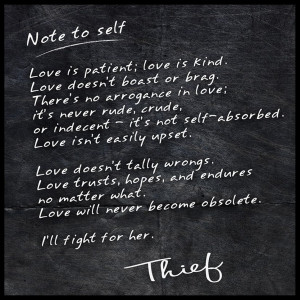 Note to self
Love is patient; love is kind.
Love doesn't boast or brag.
There's no arrogance in love;
it's never rude, crude,
or indecent – it's not self-absorbed.
Love isn't easily upset.
Love doesn't tally wrongs.
Love trusts, hopes, and endures
no matter what.
Love will never become obsolete.
I'll fight for her.
Thief